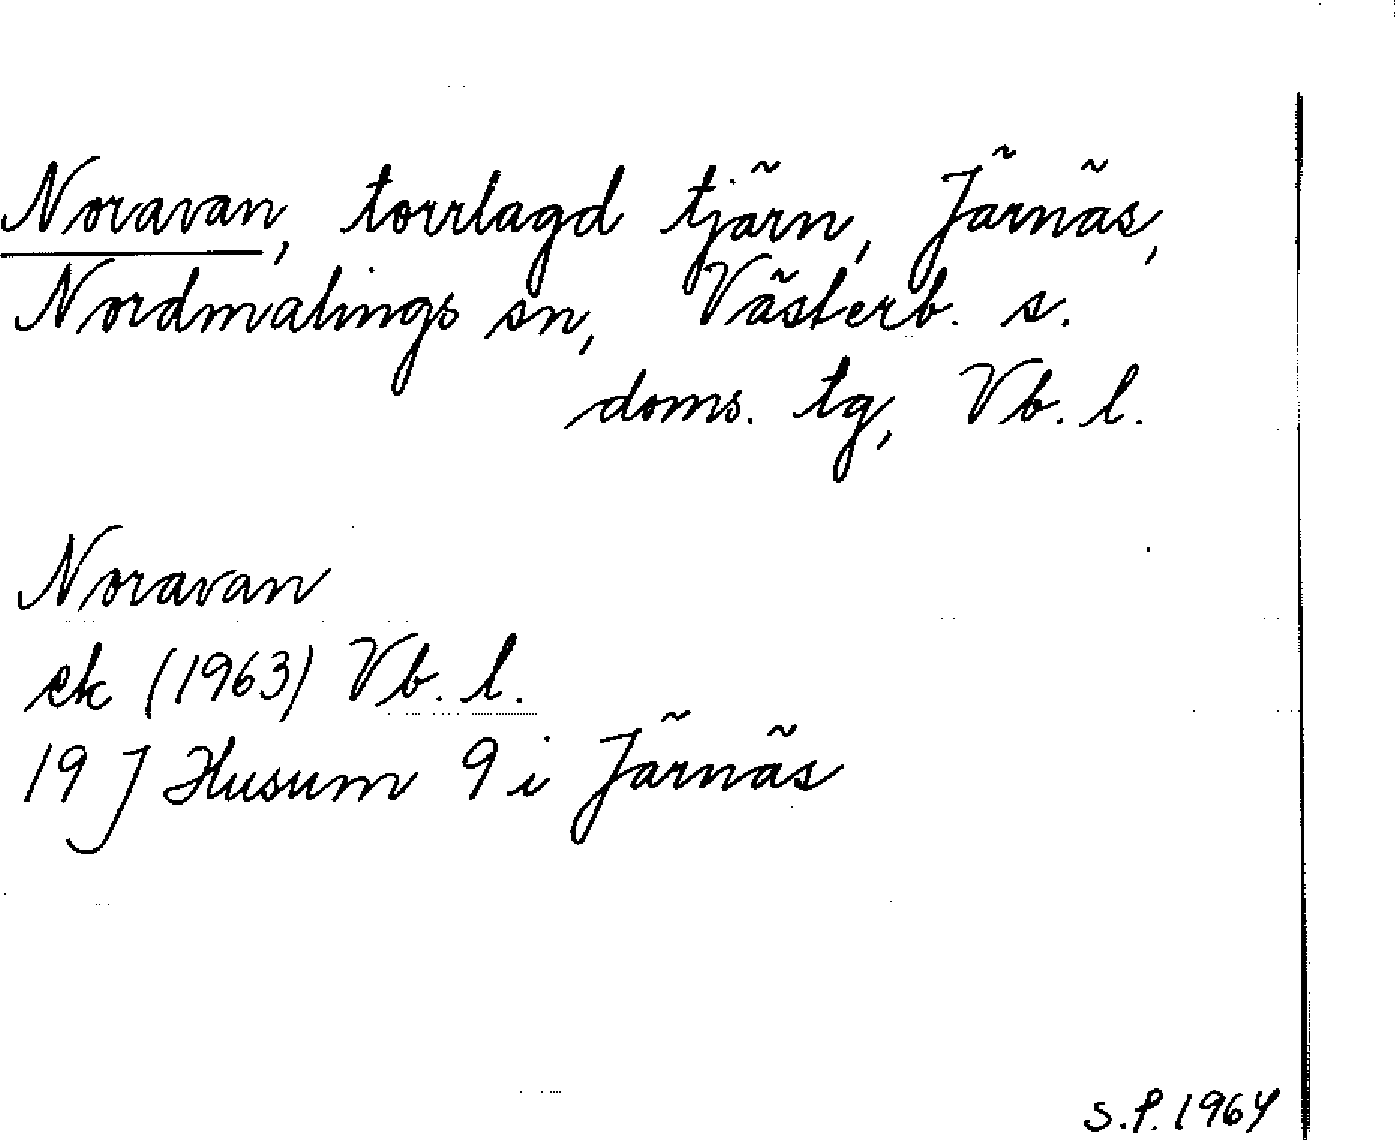 Noravan, torrlagd tjärn, Järnäs,
Nordmalings sn, Västerb. s.
doms. tg, Vb. l.
Noravan
ek (1963) Vb. l.
19 J Husum 9 i Järnäs
S.P. 1964